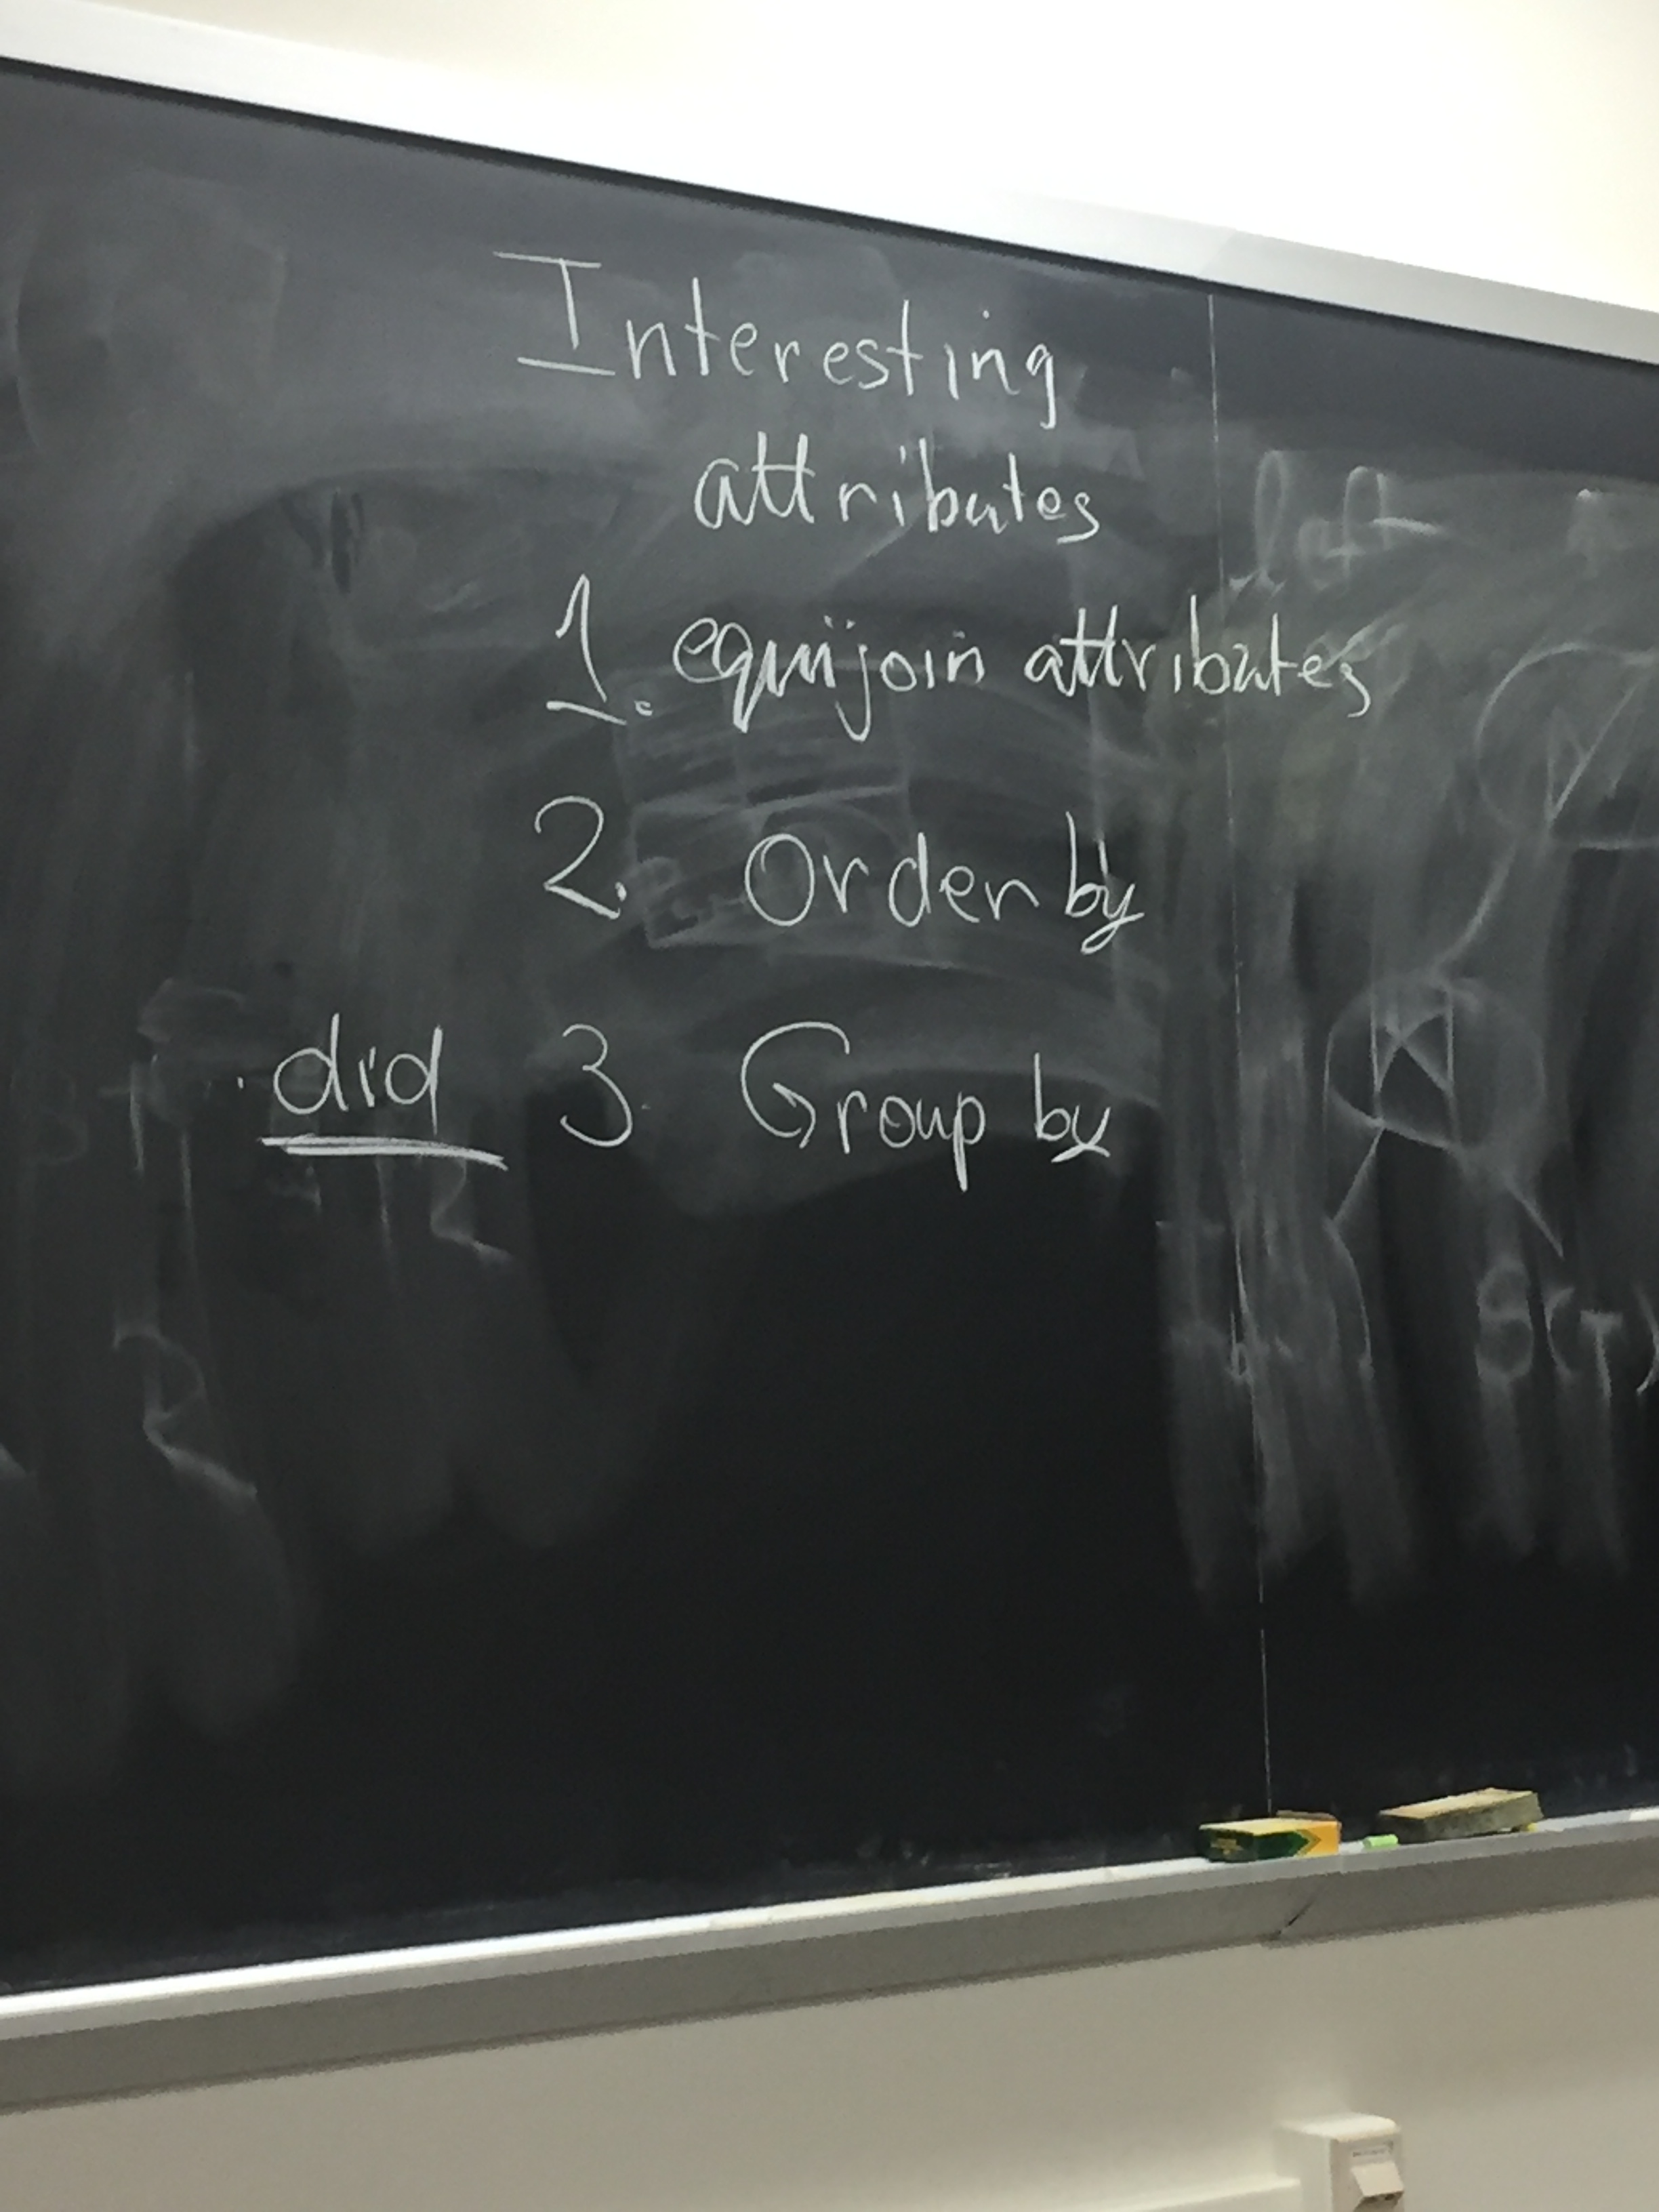 Interesting
attributes
1. equijoin attributes
2. Order by
did 3. Group by
left